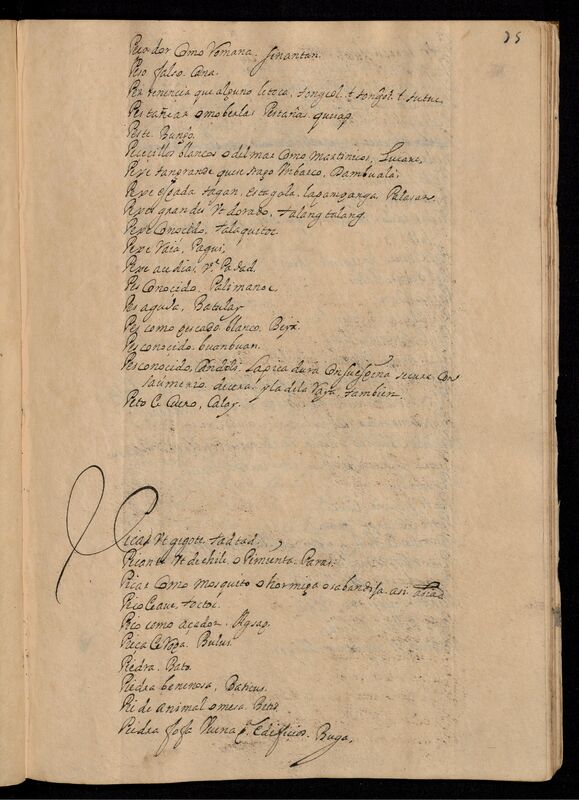 35
Pesador Como Romana. sinantan.
Peso falso. Cana.
Pertenencia que alguno le toca, tongcol. t. tongol. t. tutuc.
Pestañear omoberlas Pestañas. quirap.
Peste. Bungo.
Pececillos blancos o del mar Como Martinicos,
Pexe tan grande que se trago Vn barco, Dambuala.
Pexe espada tagan, Estagala. lapangpanga, Palasan.
Pexe grande Vt dorado. talangtalang.
Pexe Conocido, talaquitoc.
Pexe Raia, Pagui.
Pexe acedias, Vt Padad.
Pes Conocido. Palimanoc,
Pes aguda, Batulay
Pes como pescado blanco.
Pes conocido. buanbuan.
Pes conocido, Candoli. La picadura Con su espina se cura Con
saumerio. de cera. y la de la Raya, tambien.
Peto Ce Cuero, Calay.
Picar Vt gigote. tadtad.
Picante Vt de chile. o Pimienta. Parat.
Picar Como mosquito o hormiga o sabandija. asi.
Pico Ce aue, toctoc.
Pico como açador. Agsap.
Pieca Ce Ropa. Bulus.
Piedra. Bato.
Piedra benenosa, Baticus.
Pie de animal o mesa. Betis
Piedra fofa Buena pa. Edificios. Buga.